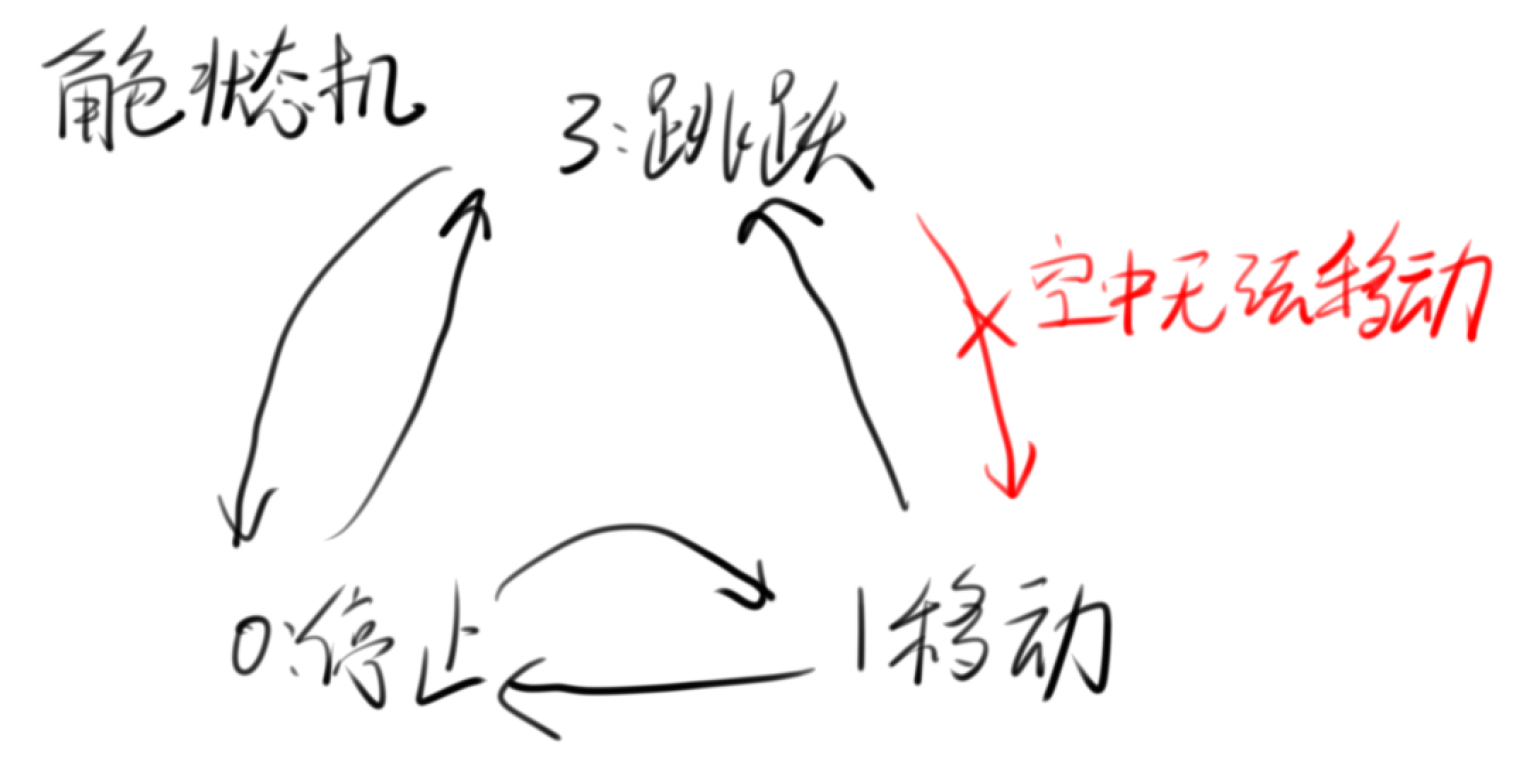 角色状态机
3:跳跃
空中无法移动
0:停止
1移动